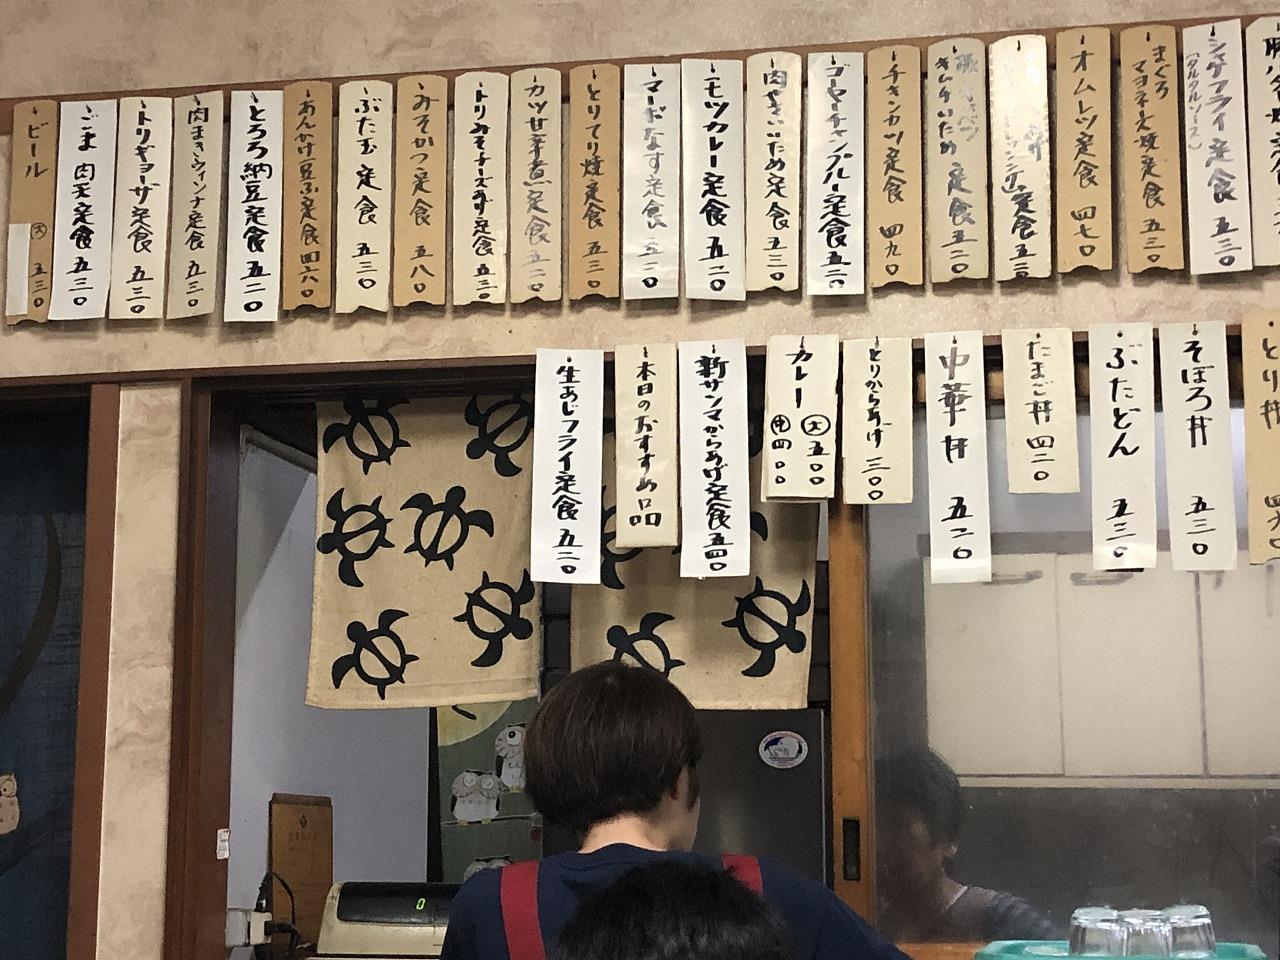 ビール ㊅ 五三〇
ごま肉天定食 五三〇
トリギョーザ定食 五三〇
肉まきウィンナ定食 五三〇
とろろ納豆定食 五二〇
あんかけ豆ふ定食 四六〇
ぶた玉定食 五三〇
みそかつ定食 五八〇
トリみそチーズあげ定食 五三〇
カツ甘辛煮定食 五二〇
とりてり焼定食 五三〇
マーボなす定食 五二〇
モツカレー定食 五二〇
肉やさいいため定食 五三〇
ゴーヤーチャンプルー定食 五二〇
チキンカツ定食 四九〇
豚キャベツ
キムチいため定食 五二〇
定食 五三〇
オムレツ定食 四七〇
まぐろ
マヨネーズ焼定食 五三〇
シャケフライ定食 五三〇
(タルタルソース)
生あじフライ定食 五二〇
本日のおすすめ品
新サンマからあげ定食 五四〇
カレー
大 五〇〇
中 四〇〇
とりからあげ 三〇〇
中華丼 五二〇
たまご丼 四二〇
ぶたどん 五三〇
そぼろ丼 五三〇
とり丼 四六〇